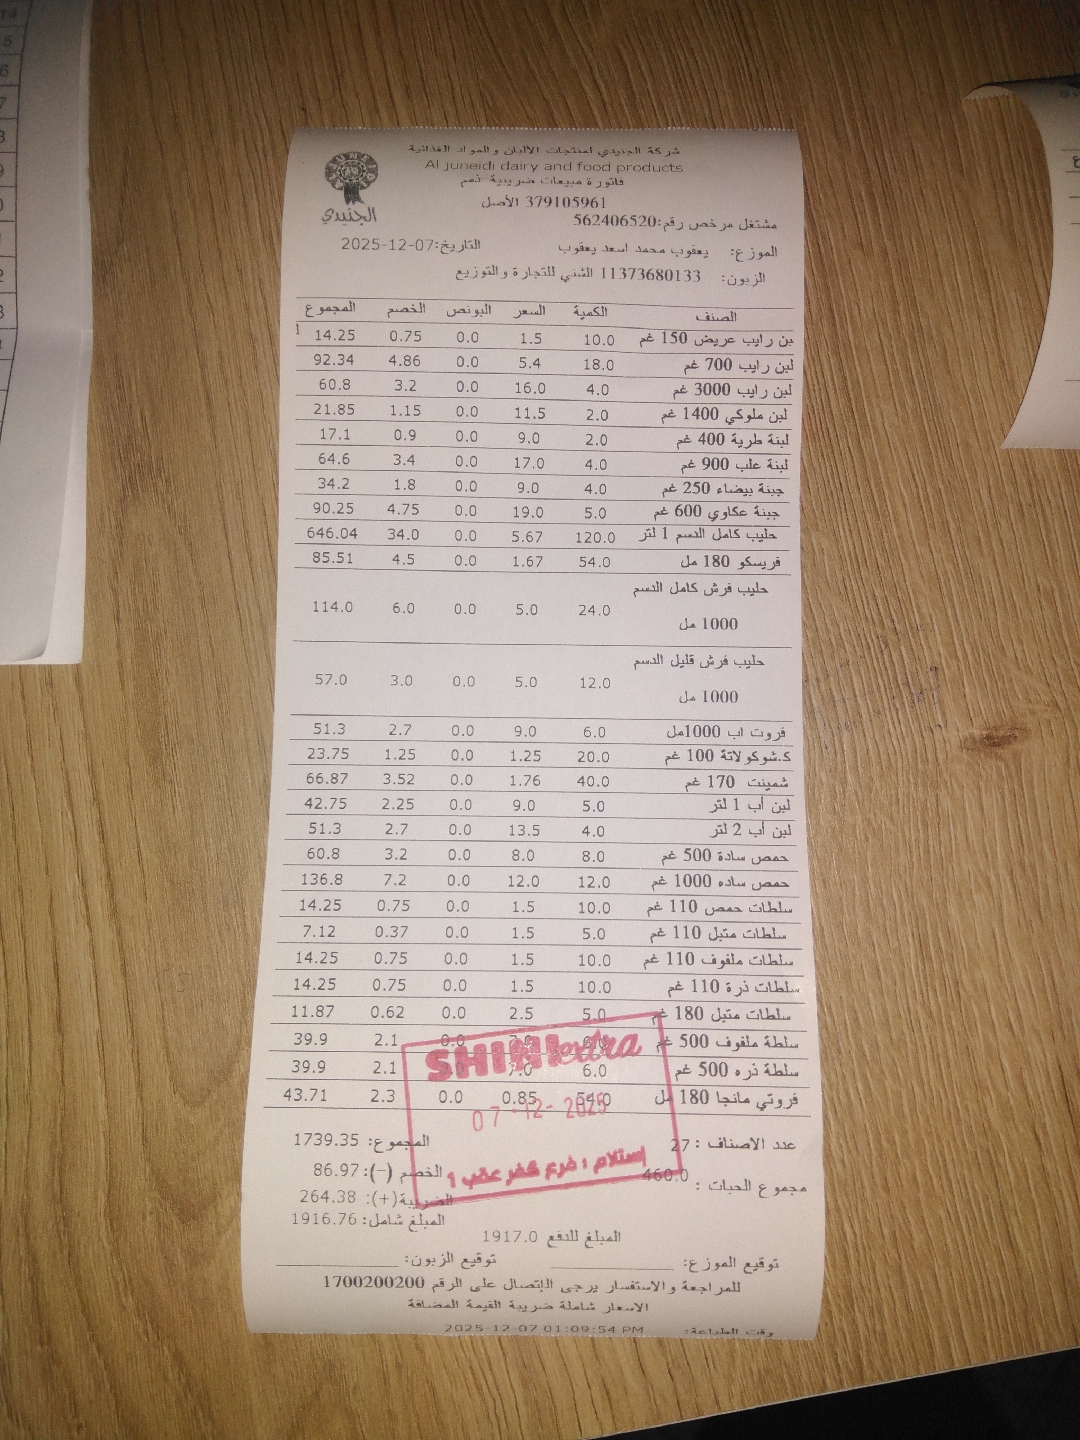 شركة الجنيدي لمنتجات الألبان والمواد الغذائية
Al juneidi dairy and food products
فاتورة مبيعات ضريبية ذمم
379105961 الأصل
الجنيدي
مشتغل مرخص رقم:562406520
الموزع: يعقوب محمد اسعد يعقوب التاريخ:2025-12-07
الزبون: 11373680133 الشني للتجارة والتوزيع
الصنف الكمية السعر البونص الخصم المجموع
بن رايب عريض 150 غم 10.0 1.5 0.0 0.75 14.25 ل
لبن رايب 700 غم 18.0 5.4 0.0 4.86 92.34
لبن رايب 3000 غم 4.0 16.0 0.0 3.2 60.8
لبن ملوكي 1400 غم 2.0 11.5 0.0 1.15 21.85
لبنة طرية 400 غم 2.0 9.0 0.0 0.9 17.1
لبنة علب 900 غم 4.0 17.0 0.0 3.4 64.6
جبنة بيضاء 250 غم 4.0 9.0 0.0 1.8 34.2
جبنة عكاوي 600 غم 5.0 19.0 0.0 4.75 90.25
حليب كامل الدسم 1 لتر 120.0 5.67 0.0 34.0 646.04
فريسكو 180 مل 54.0 1.67 0.0 4.5 85.51
حليب فرش كامل الدسم
1000 مل 24.0 5.0 0.0 6.0 114.0
حليب فرش قليل الدسم
1000 مل 12.0 5.0 0.0 3.0 57.0
فروت اب 1000مل 6.0 9.0 0.0 2.7 51.3
ك.شوكولاتة 100 غم 20.0 1.25 0.0 1.25 23.75
شمينت 170 غم 40.0 1.76 0.0 3.52 66.87
لبن أب 1 لتر 5.0 9.0 0.0 2.25 42.75
لبن أب 2 لتر 4.0 13.5 0.0 2.7 51.3
حمص سادة 500 غم 8.0 8.0 0.0 3.2 60.8
حمص ساده 1000 غم 12.0 12.0 0.0 7.2 136.8
سلطات حمص 110 غم 10.0 1.5 0.0 0.75 14.25
سلطات متبل 110 غم 5.0 1.5 0.0 0.37 7.12
سلطات ملفوف 110 غم 10.0 1.5 0.0 0.75 14.25
سلطات ذرة 110 غم 10.0 1.5 0.0 0.75 14.25
سلطات متبل 180 غم 5.0 2.5 0.0 0.62 11.87
سلطة ملفوف 500 غم 6.0 7.0 0.0 2.1 39.9
سلطة ذره 500 غم 6.0 7.0 0.0 2.1 39.9
فروتي مانجا 180 مل 54.0 0.85 0.0 2.3 43.71
SHINI extra
07-12-2025
إستلام : فرع كفر عقب 1
عدد الاصناف : 27 المجموع: 1739.35
مجموع الحبات : 460.0 الخصم (-): 86.97
الضريبة(+): 264.38
المبلغ شامل: 1916.76
المبلغ للدفع 1917.0
توقيع الموزع: توقيع الزبون:
للمراجعة والاستفسار يرجى الإتصال على الرقم 1700200200
الاسعار شاملة ضريبة القيمة المضافة
وقت الطباعة: 2025-12-07 01:09:54 PM